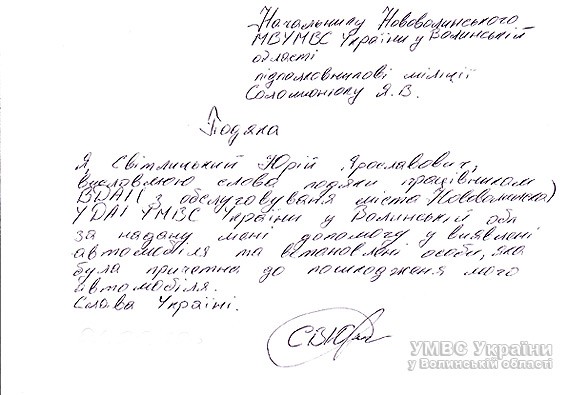 Начальнику Нововолинського
МВУМВС України у Волинській
області
підполковникові міліції
Соломонюку Я.В.
Подяка
Я Світлицький Юрій Ярославович,
висловлюю слова подяки працівникам
ВДАІ з обслуговуваня міста Нововолинська)
УДАІ УМВС України у Волинській обл
за надану мені допомогу у виявлені
автомобіля та встановлені особи, яка
була причетна до пошкодженя мого
автомобіля.
Слава Україні.
УМВС України
у Волинській області